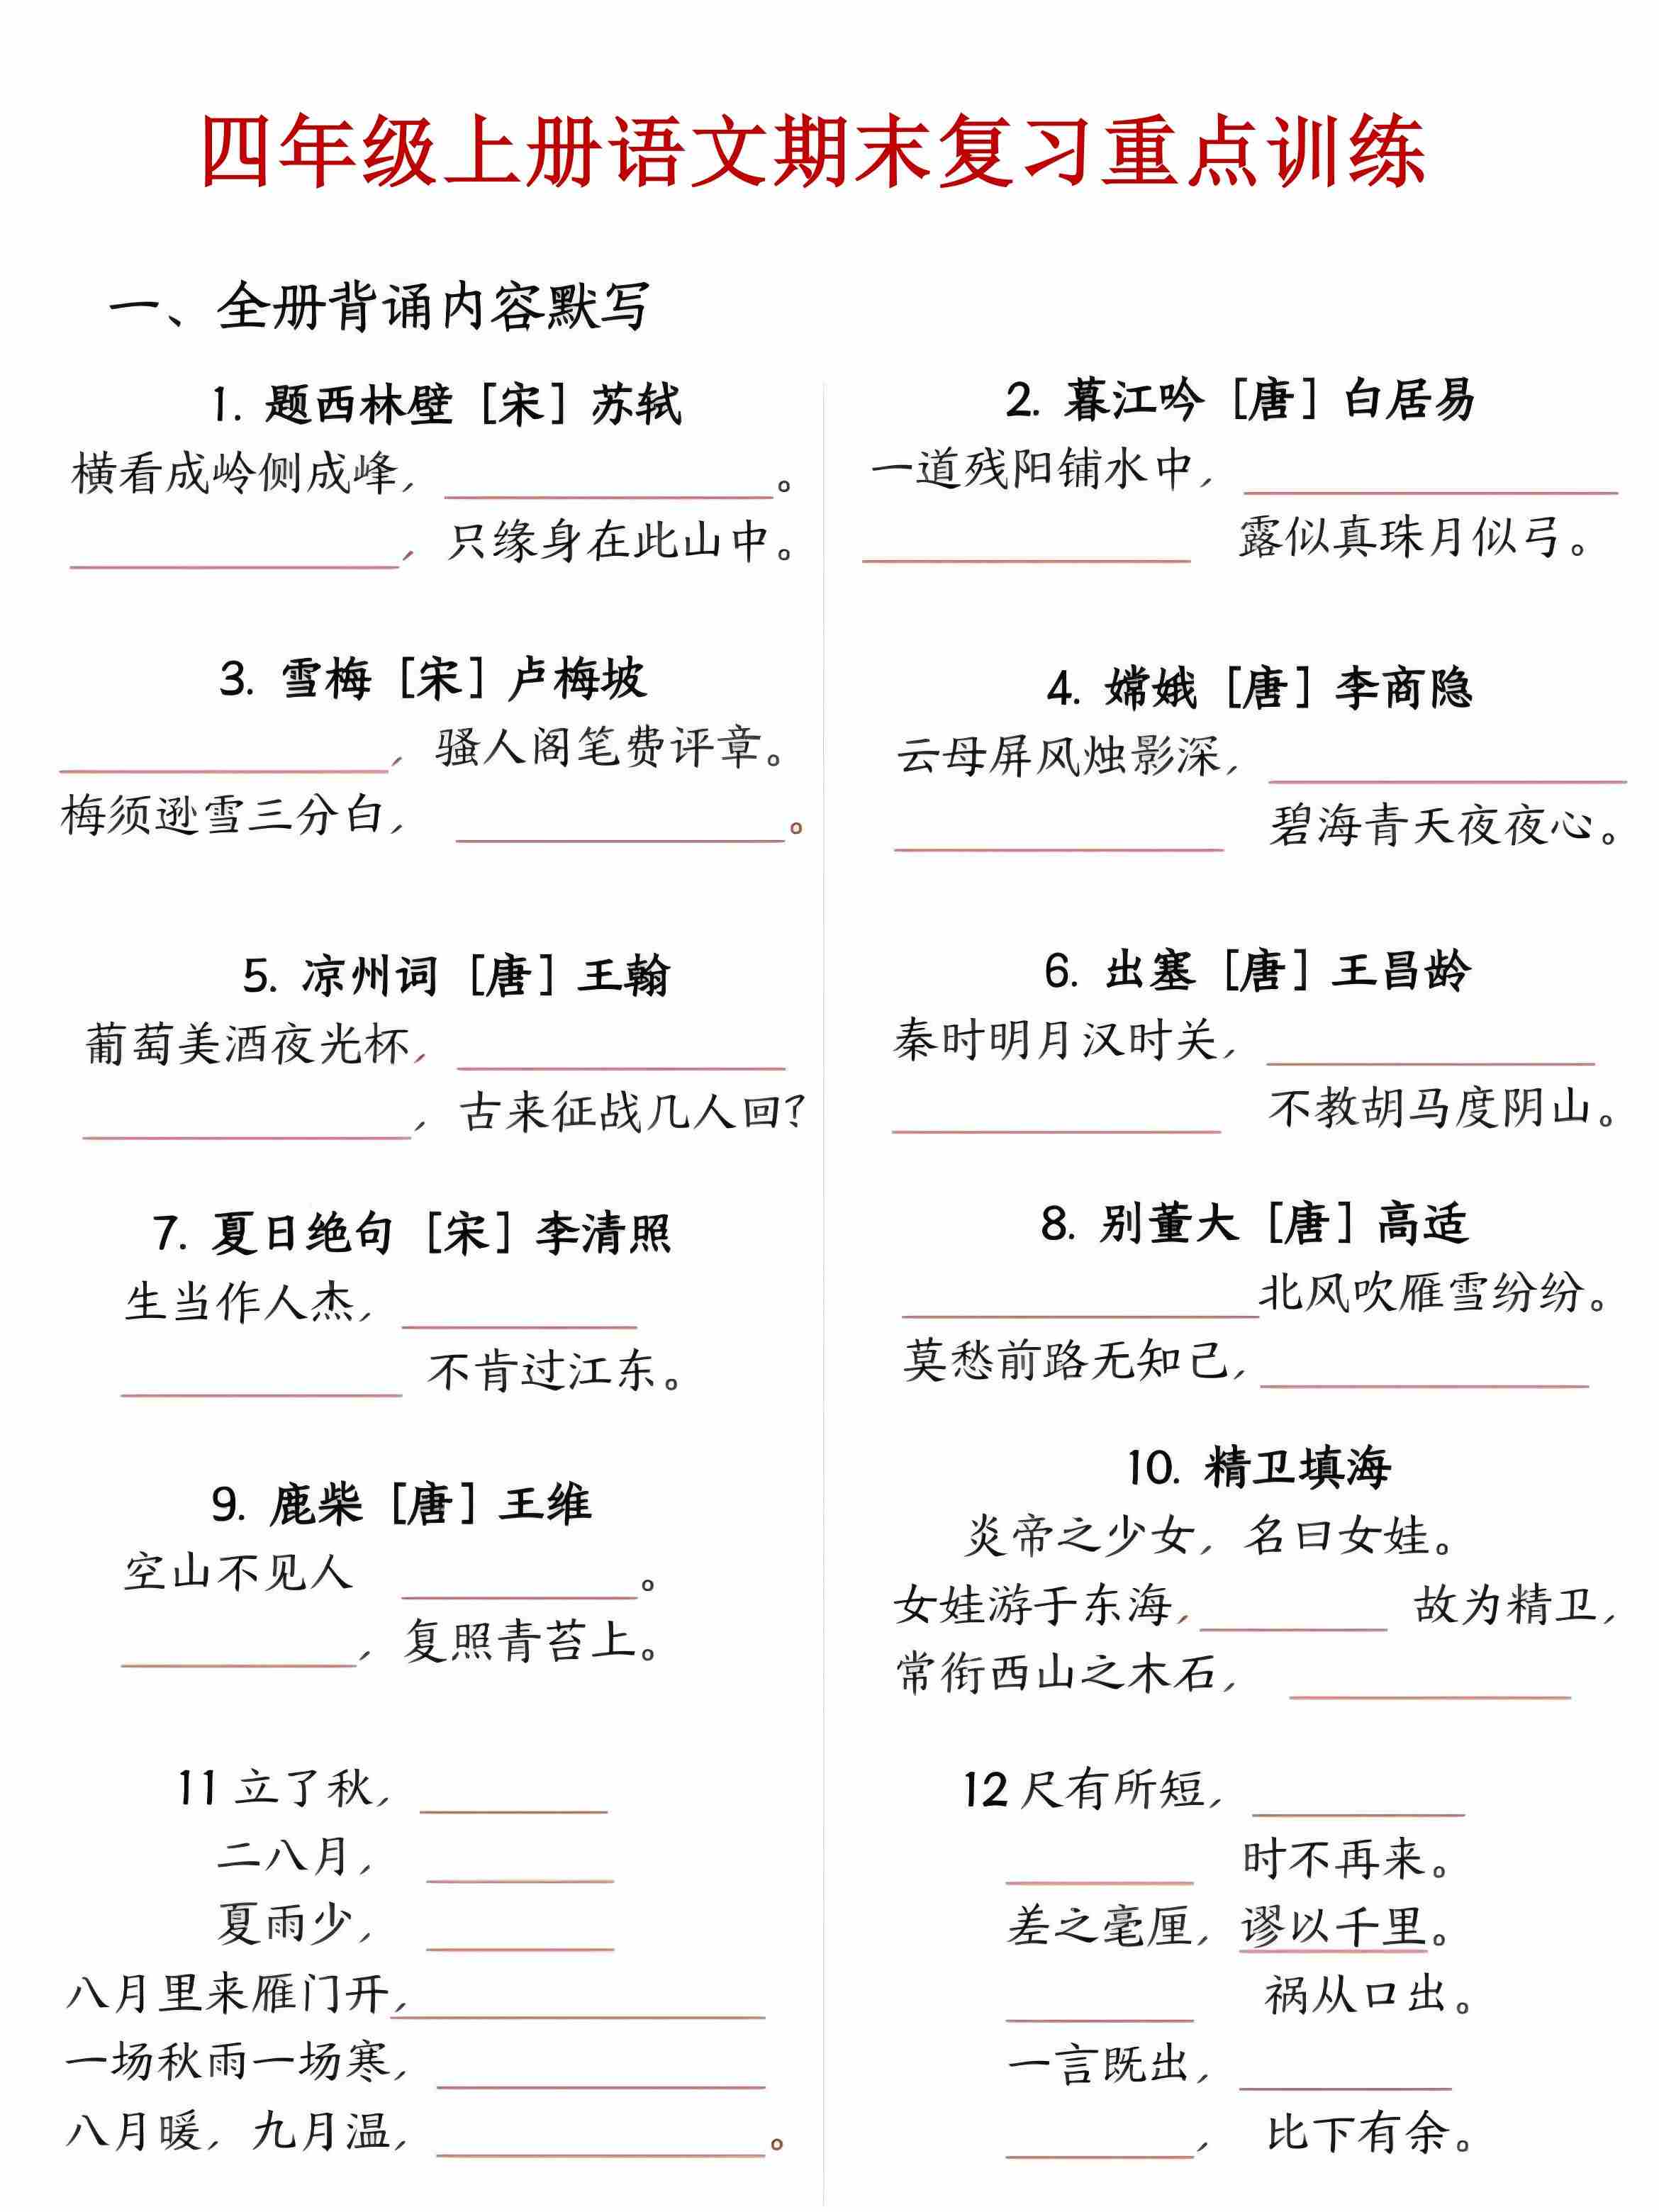 四年级上册语文期末复习重点训练
一、全册背诵内容默写
1. 题西林壁［宋］苏轼
横看成岭侧成峰，__________。
__________，只缘身在此山中。
3. 雪梅［宋］卢梅坡
__________，骚人阁笔费评章。
梅须逊雪三分白，__________。
5. 凉州词［唐］王翰
葡萄美酒夜光杯，__________
__________，古来征战几人回？
7. 夏日绝句［宋］李清照
生当作人杰，__________
__________ 不肯过江东。
9. 鹿柴［唐］王维
空山不见人 __________。
__________，复照青苔上。
11 立了秋，__________
二八月，__________
夏雨少，__________
八月里来雁门开，__________
一场秋雨一场寒，__________
八月暖，九月温，__________。
2. 暮江吟［唐］白居易
一道残阳铺水中，__________
__________ 露似真珠月似弓。
4. 嫦娥［唐］李商隐
云母屏风烛影深，__________
__________ 碧海青天夜夜心。
6. 出塞［唐］王昌龄
秦时明月汉时关，__________
__________ 不教胡马度阴山。
8. 别董大［唐］高适
__________北风吹雁雪纷纷。
莫愁前路无知己，__________
10. 精卫填海
炎帝之少女，名曰女娃。
女娃游于东海，__________ 故为精卫，
常衔西山之木石，__________
12 尺有所短，__________
__________ 时不再来。
差之毫厘，谬以千里。
__________ 祸从口出。
一言既出，__________
__________，比下有余。